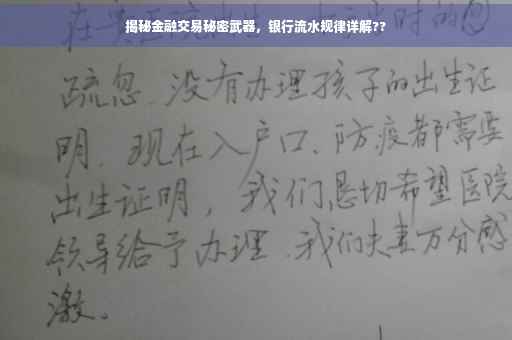 揭秘金融交易秘密武器，银行流水规律详解??
疏忽.没有办理孩子的出生证
明.现在入户口、防疫都需要
出生证明，我们恳切希望医院
领导给予办理.我们夫妻万分感
激。